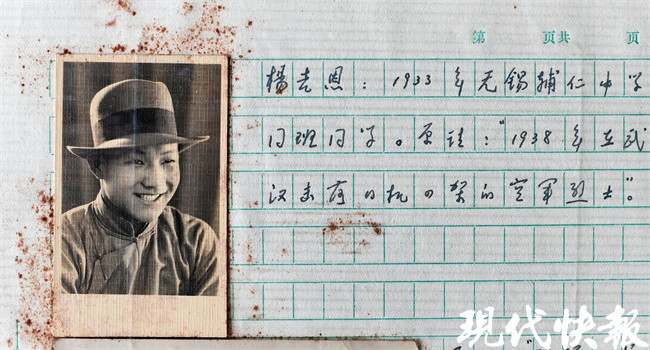 第 页共 页
楊吉恩：1933年无锡辅仁中学
同班同学。原註："1938年在武
汉击落日机四架的空军烈士"。
现代快報